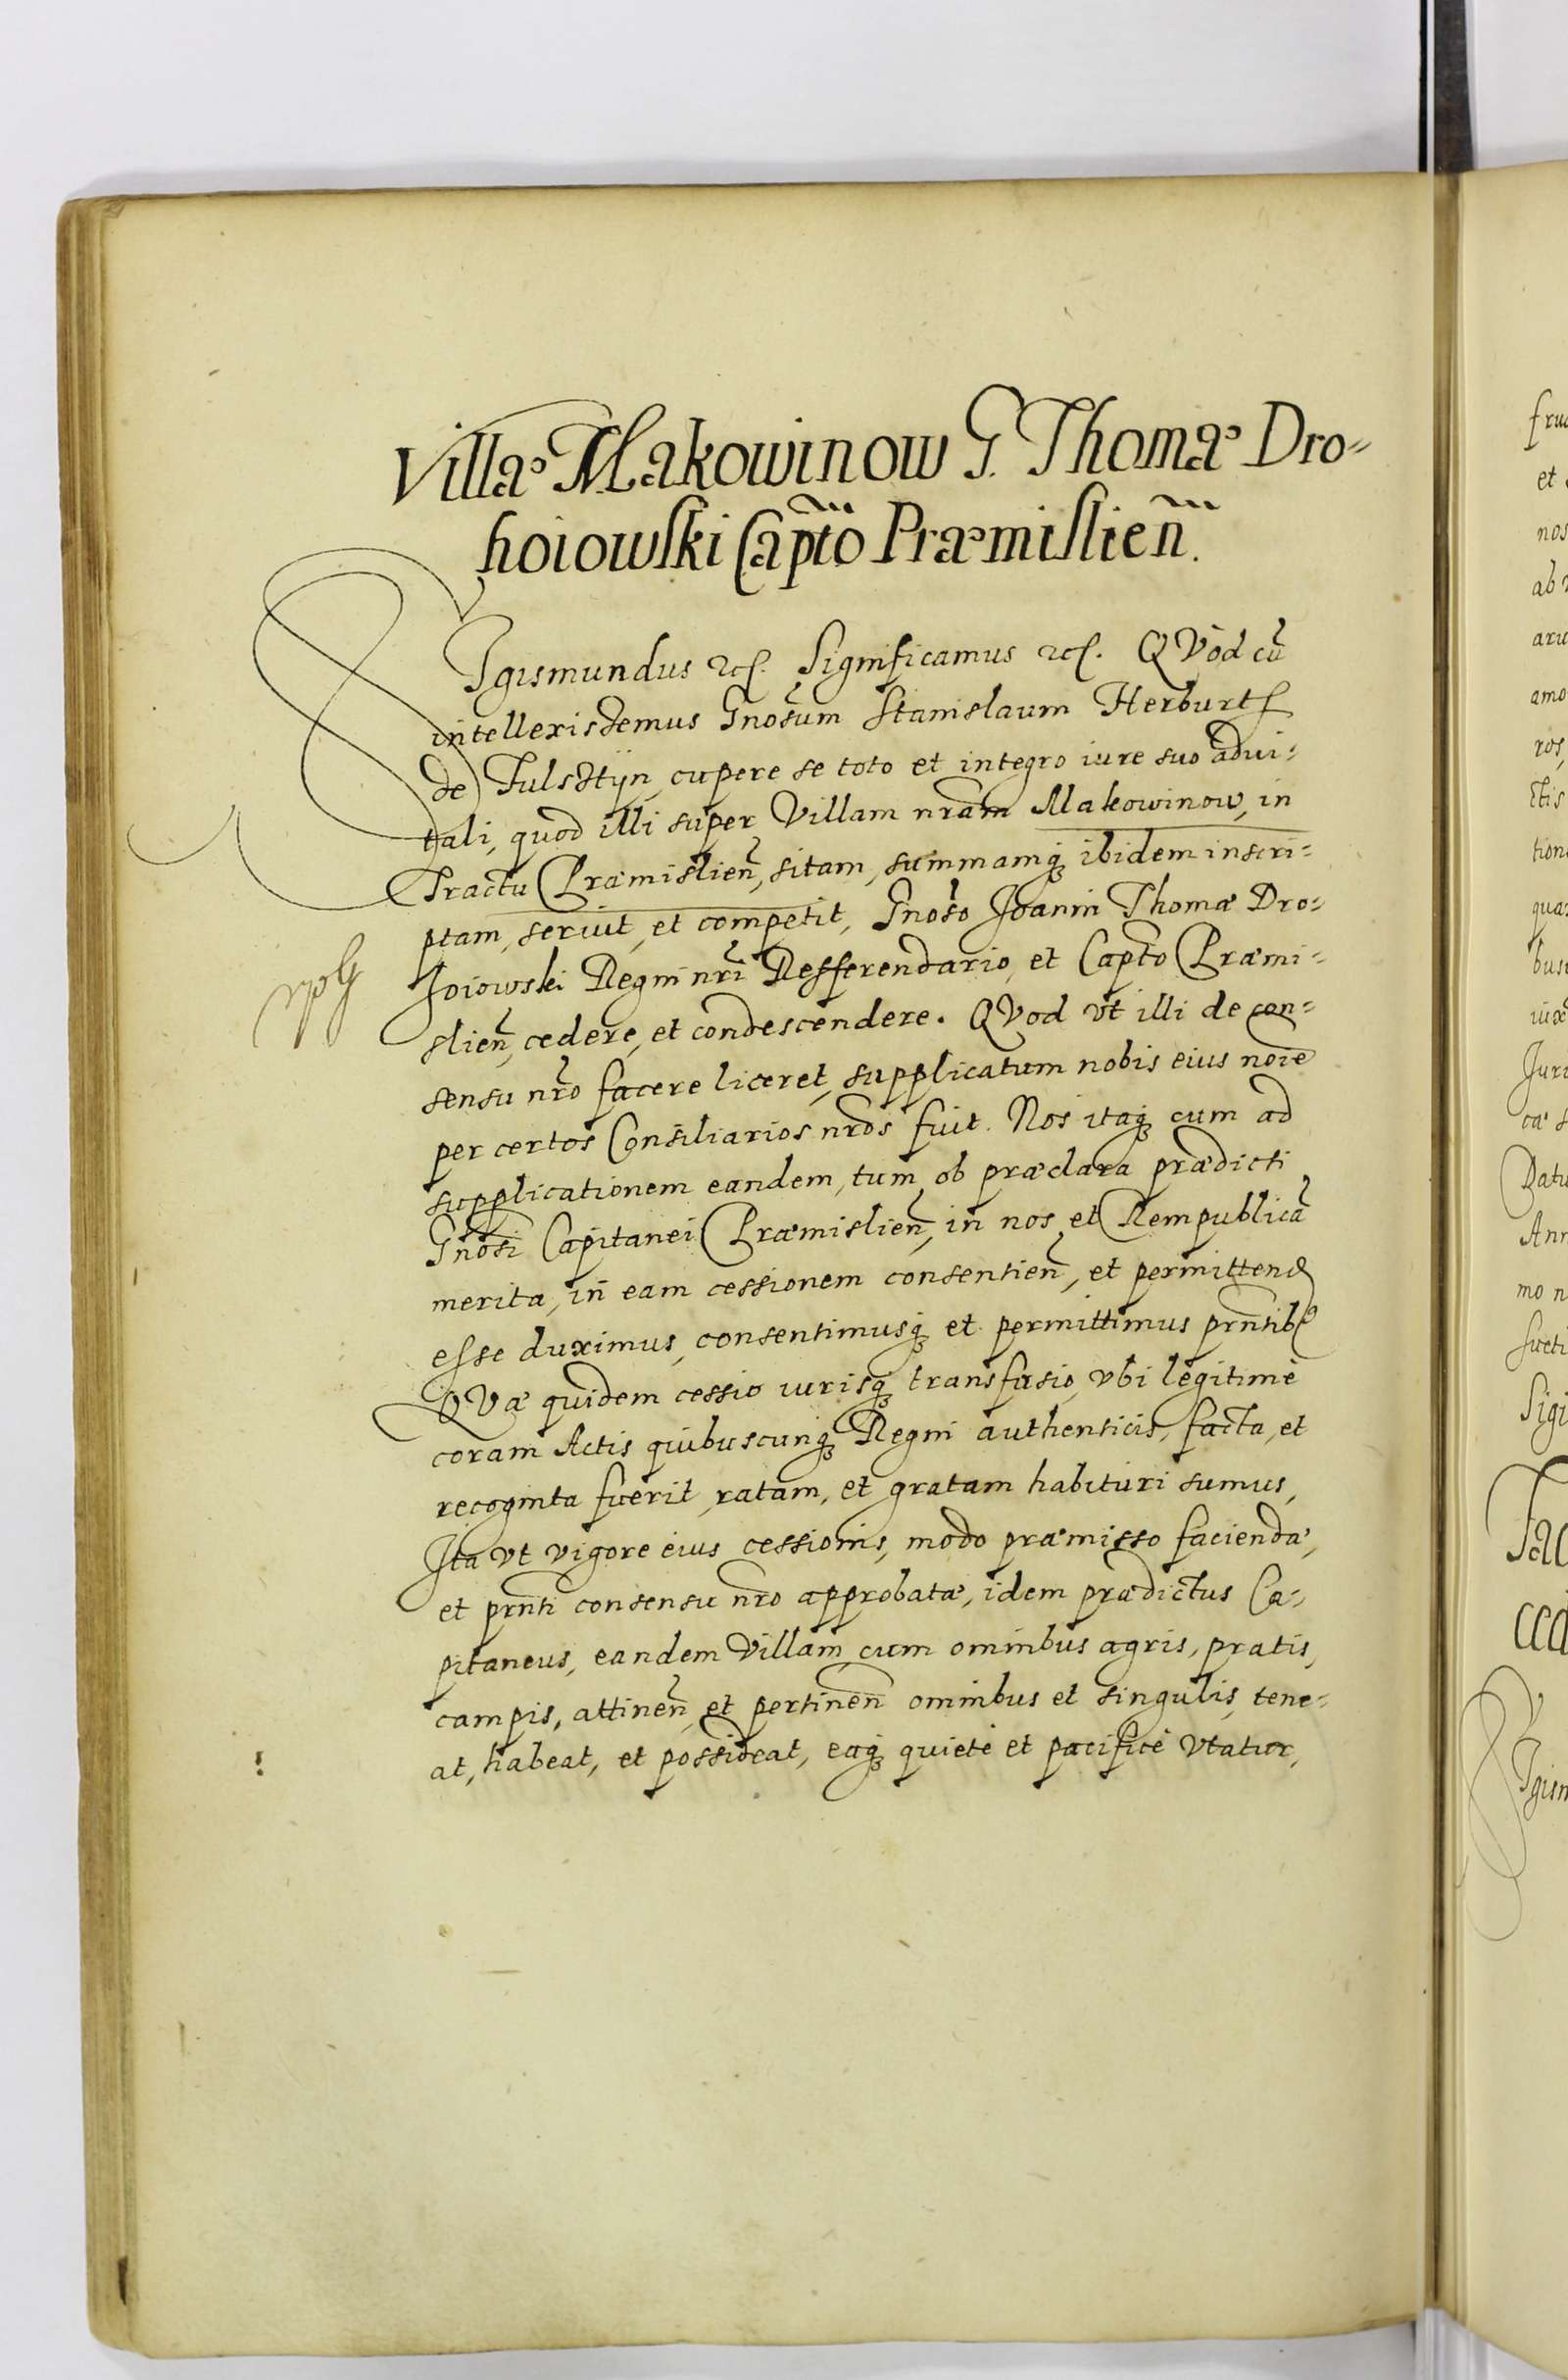 Villæ Makowinow G. Thomæ Dro-
hoiowski Capto Præmislien̄.
SIgismundus etc. Significamus etc. QVod cū
intellexissemus Gnosum Stanislaum Herburt
de Fulsstÿn, cupere se toto et integro iure suo advi-
tali, quod illi super Villam nram Makowinow, in
Tractu Præmislien̄, sitam, summamq; ibidem inscri-
ptam, seruit, et competit, Gnoso Joanni Thomæ Dro-
hoiowski Regni nri Refferendario, et Capto Præmi-
slien̄, cedere, et condescendere. QVod vt illi de con-
sensu nro facere liceret, supplicatum nobis eius noie
per certos Consiliarios nros fuit. Nos itaq; cum ad
supplicationem eandem, tum ob præclara prædicti
Gnosi Capitanei Præmislien̄, in nos et Rempublicā
merita, in eam cessionem consentien̄, et permittend
esse duximus, consentimusq; et permittimus prntib9
QVæ quidem cessio iurisq; transfusio, vbi legitimè
coram Actis quibuscunq; Regni authenticis, facta, et
recognita fuerit, ratam, et gratam habituri sumus,
Ita vt vigore eius cessionis, modo præmisso faciendæ,
et prnti consensu nro approbatæ, idem prædictus Ca-
pitaneus, eandem Villam, cum omnibus agris, pratis,
campis, attinen̄, et pertinen̄ omnibus et singulis, tene-
at, habeat, et possideat, eaq; quietè et pacificè vtatur,